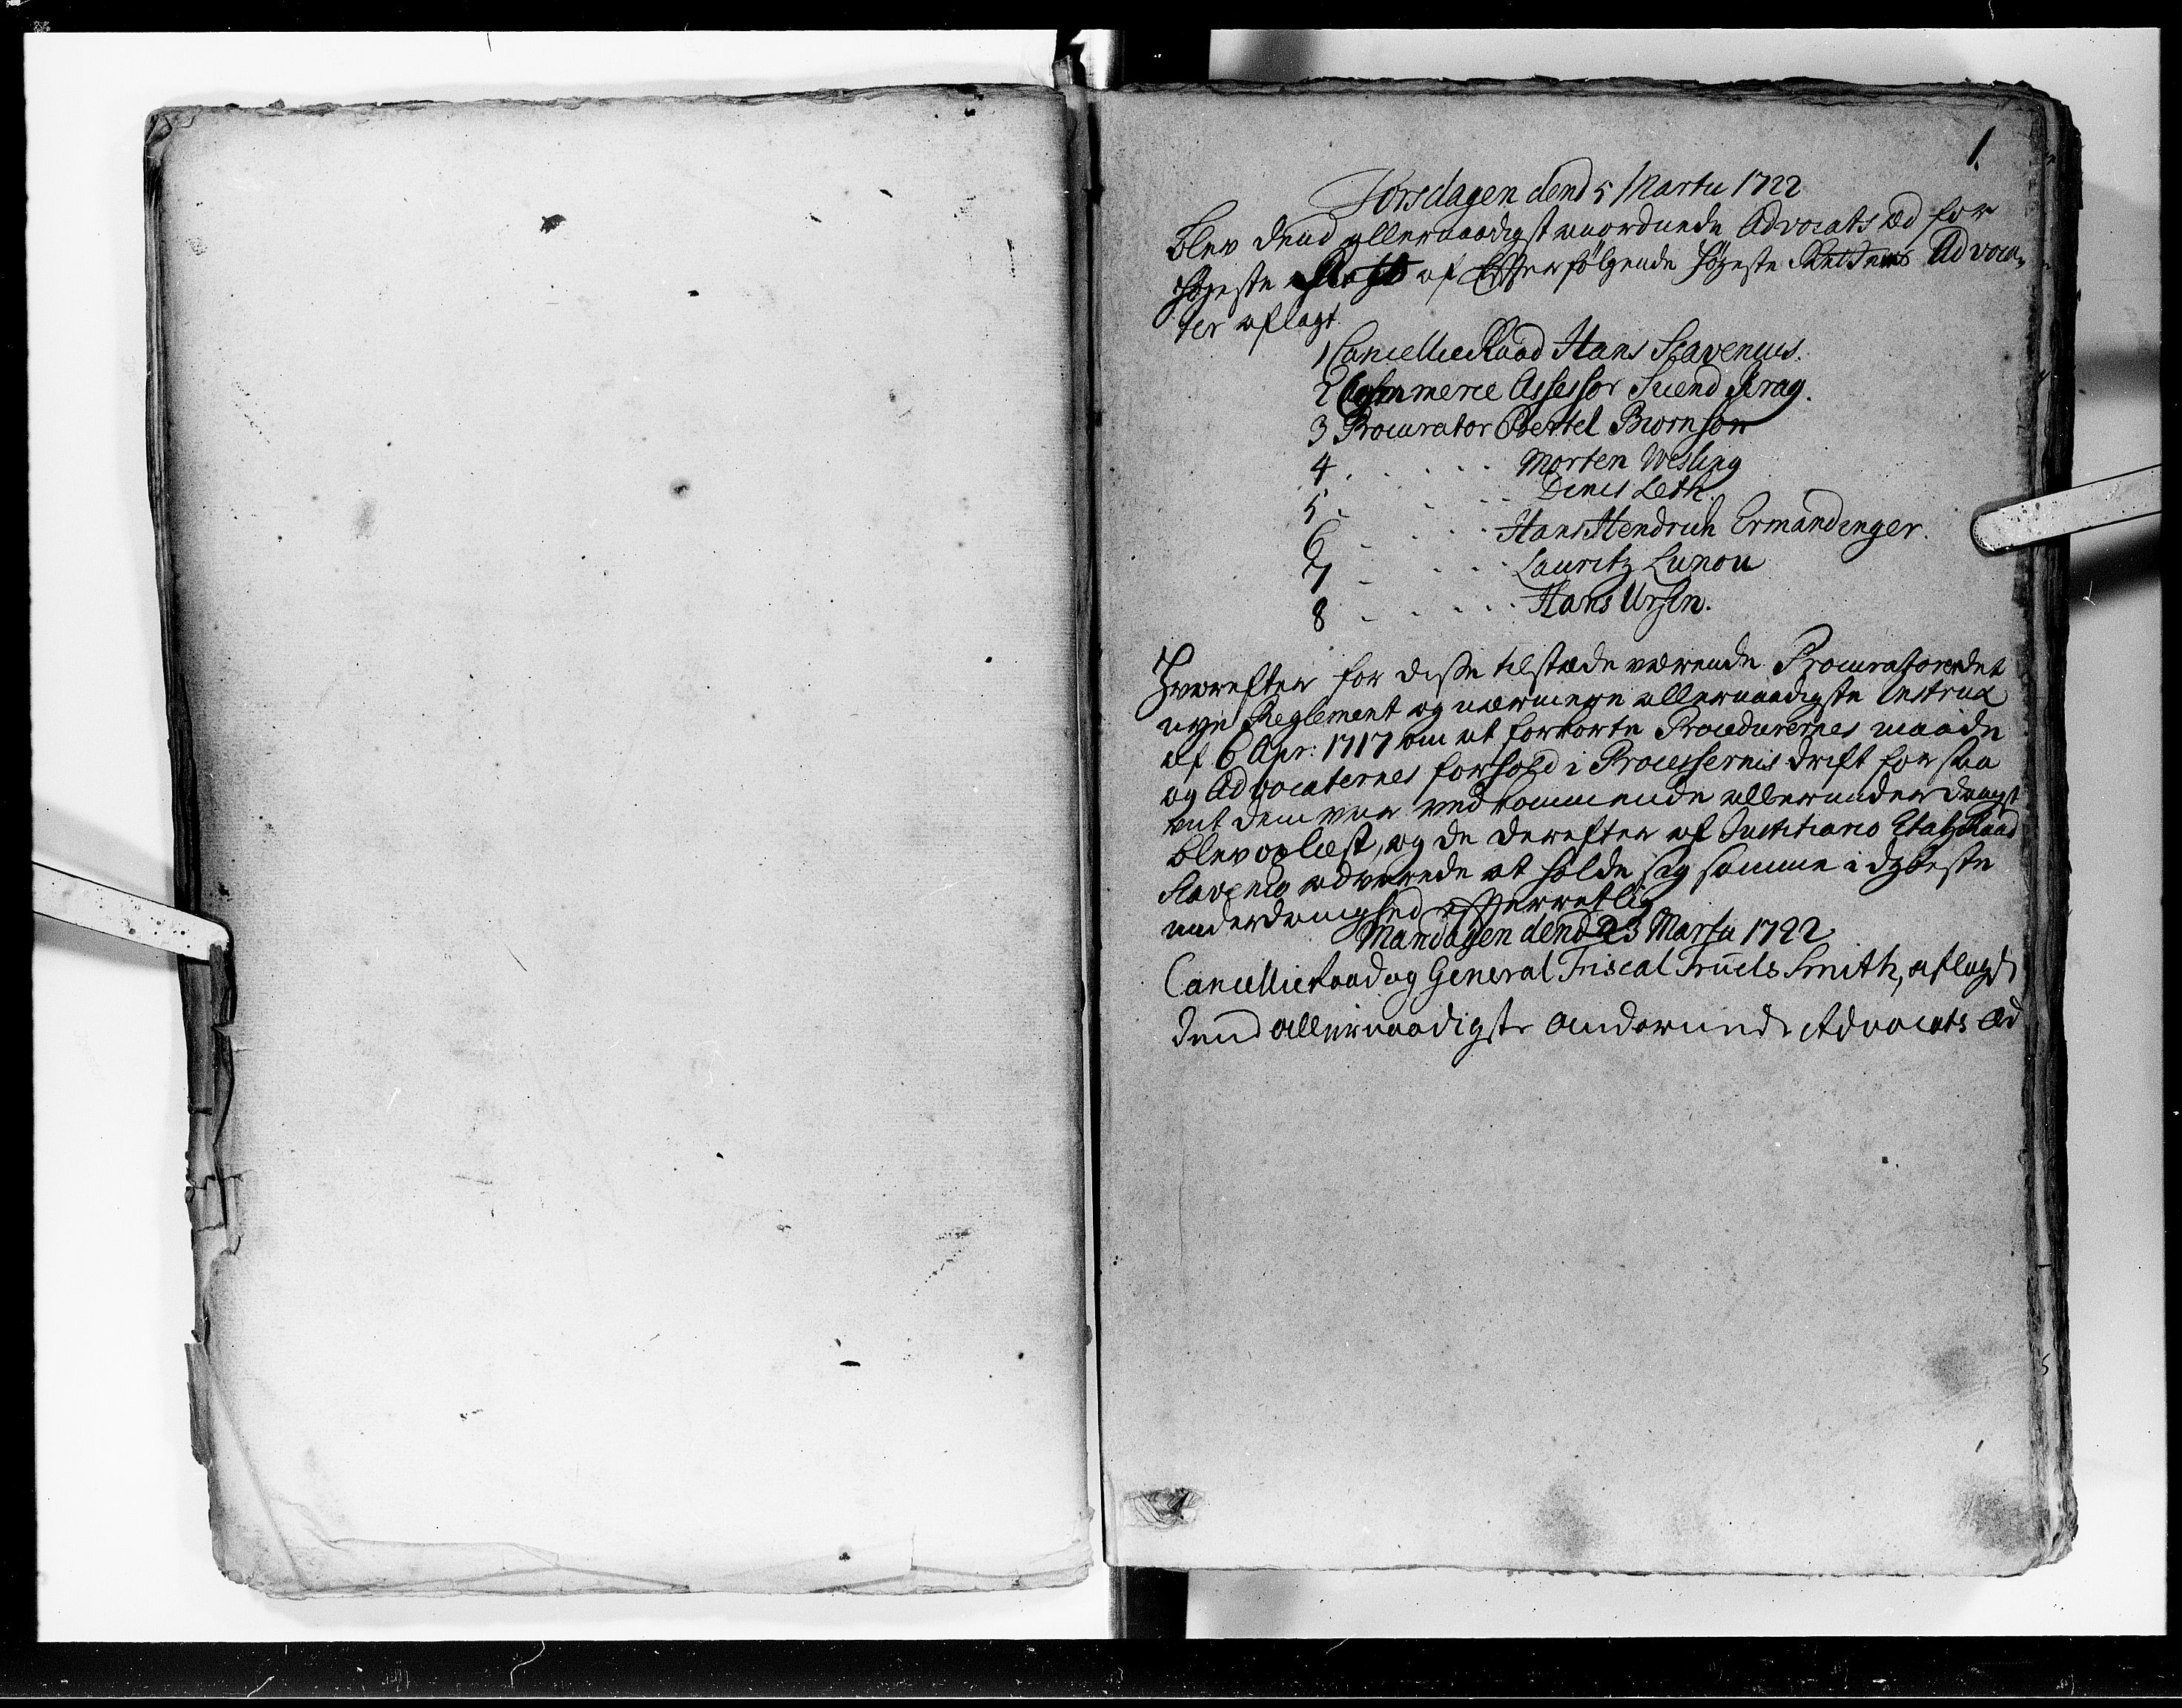 1.
Torsdagen dend 5 Martii 1722
blev dend allernaadigst anordnede Advocats æd for
Højeste Ræt af Efterfølgende Højeste Rettens Advoca-
ter aflagt.
1 Cancellie Raad Hans Scavenius.
2 Commerce Assessor Suend Krag.
3 Procurator Bertel Biornson
4 - - - - Morten Wesling
5 - - - - Dines Leth.
6 - - - - Hans Hendrich Ermandinger.
7 - - - - Lauritz Lunou
8 - - - - Hans Ursin.
Hvorefter for disse tilstæde værende Procuratorer det
nye Reglement og nærmere allernaadigste Instrux
af 6 Apr: 1717 om at forkorte Procedurernes maade
og Advocaternes forhold i Processernis drift for saa
vit dem var vedkommende allerunderdanigst
blev oplæst, og de derefter af Justitiario Etatz Raad
Scavenio advarede at holde sig samme i dybeste
underdanighed efterrætlig
Mandagen dend 23 Martii 1722
Cancellie Raad og General Fiscal Truels Smith, aflagde
dend allernaadigste anordnede Advocats Æd